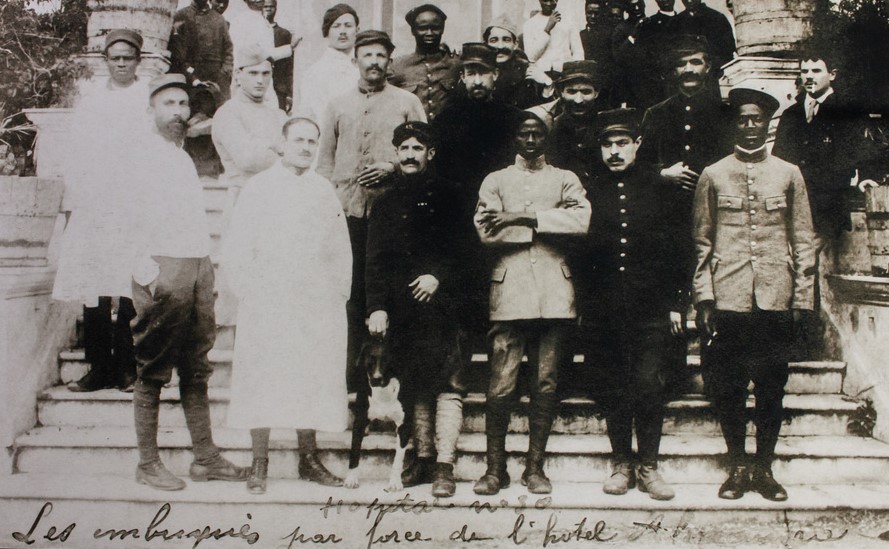 Hopital no 80
Les embusqués par force de l'hotel